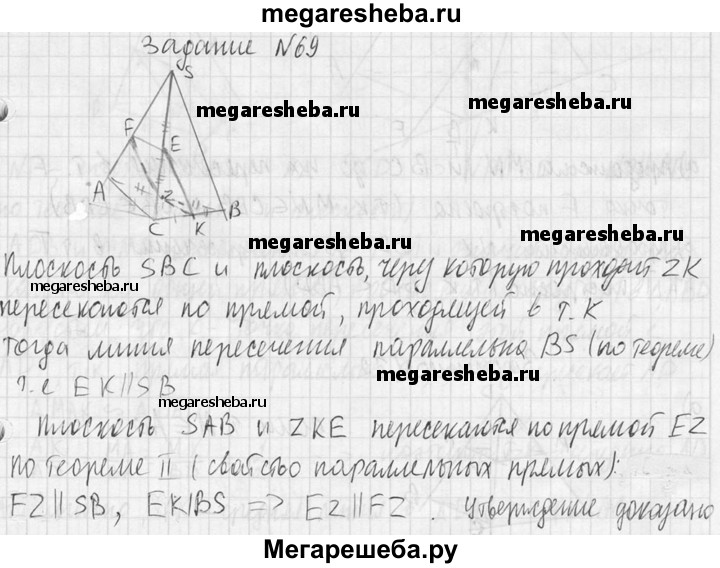 megaresheba.ru
Задание N69
S
megaresheba.ru
F
E
A
Z
B
C
K
megaresheba.ru
Плоскость SBC и плоскость, через которую проходит ZK
megaresheba.ru
пересекаются по прямой, проходящей в т. K
Тогда линия пересечения параллельна BS (по теореме)
megaresheba.ru
т.е EK || SB
megaresheba.ru
Плоскость SAB и ZKE пересекаются по прямой EZ
По теореме II (свойство параллельных прямых):
FZ || SB, EK || BS => EZ || FZ . Утверждение доказано
Мегарешеба.ру